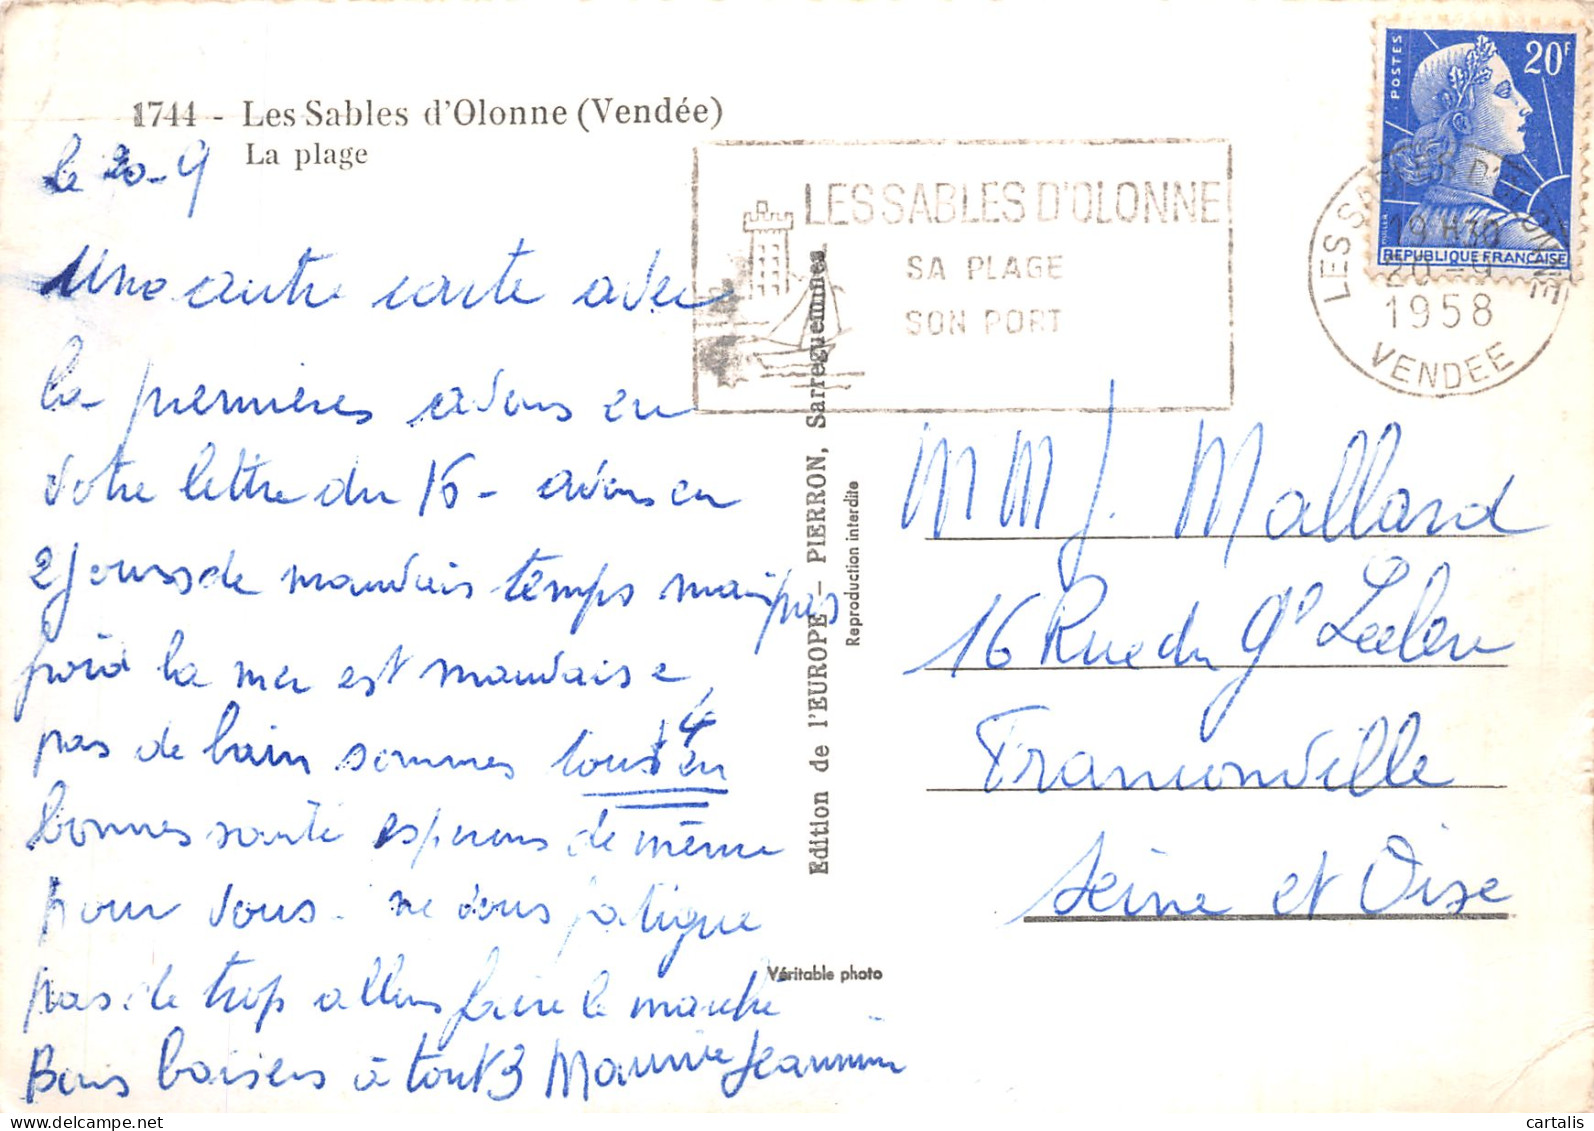 1744 - Les Sables d'Olonne (Vendée)
La plage
le 20-9
Une autre carte avec
la premières avons eu
votre lettre du 16 - avons eu
2 jours de mauvais temps mais pas
froid la mer est mauvaise,
pas de bain sommes tous 4 en
bonnes santé esperons de même
pour vous - ne vous fatigue
pas de trop allons faire le marché
Bons baisers à tout 3 Maurice Jeannine
Edition de l'EUROPE - PIERRON, Sarreguemines
Reproduction interdite
Véritable photo
LES SABLES D'OLONNE
SA PLAGE
SON PORT
POSTES
20F
MULLER
REPUBLIQUE FRANÇAISE
LES SABLES D'OLONNE
19 H30
20 - 9
1958
VENDEE
MM J. Mallard
16 Rue du Gl Leclerc
Franconville
Seine et Oise
cartalis